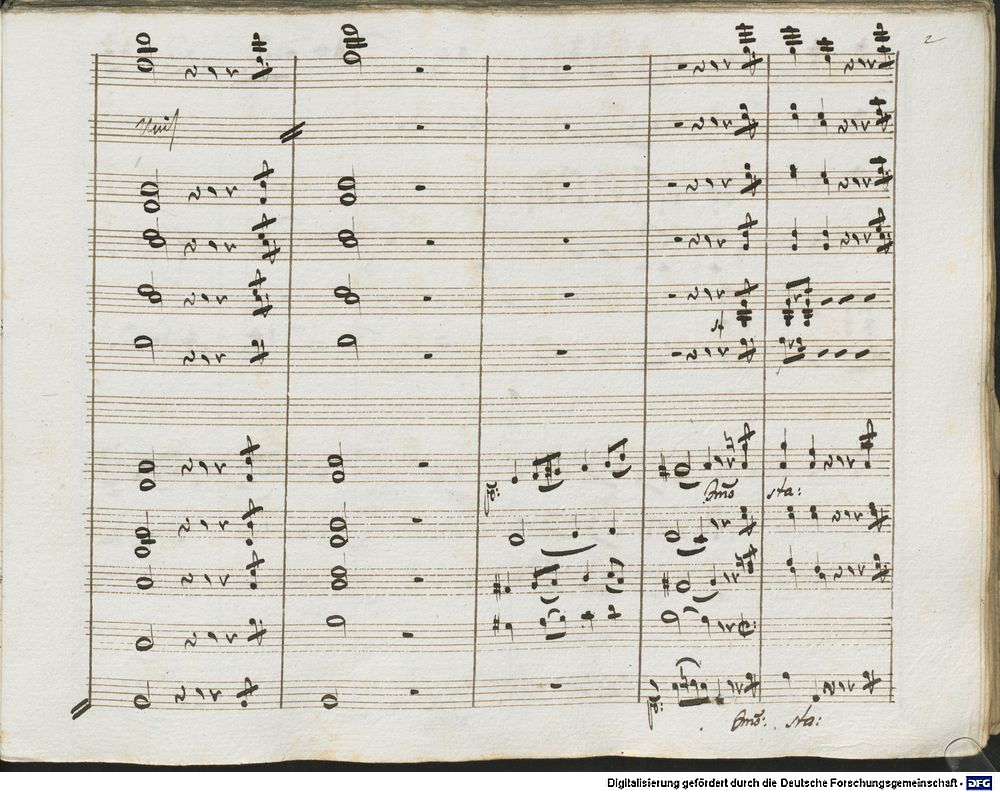 2
Unis
po:
Fmo sta:
po:
Fmo: sta:
Digitalisierung gefördert durch die Deutsche Forschungsgemeinschaft - DFG